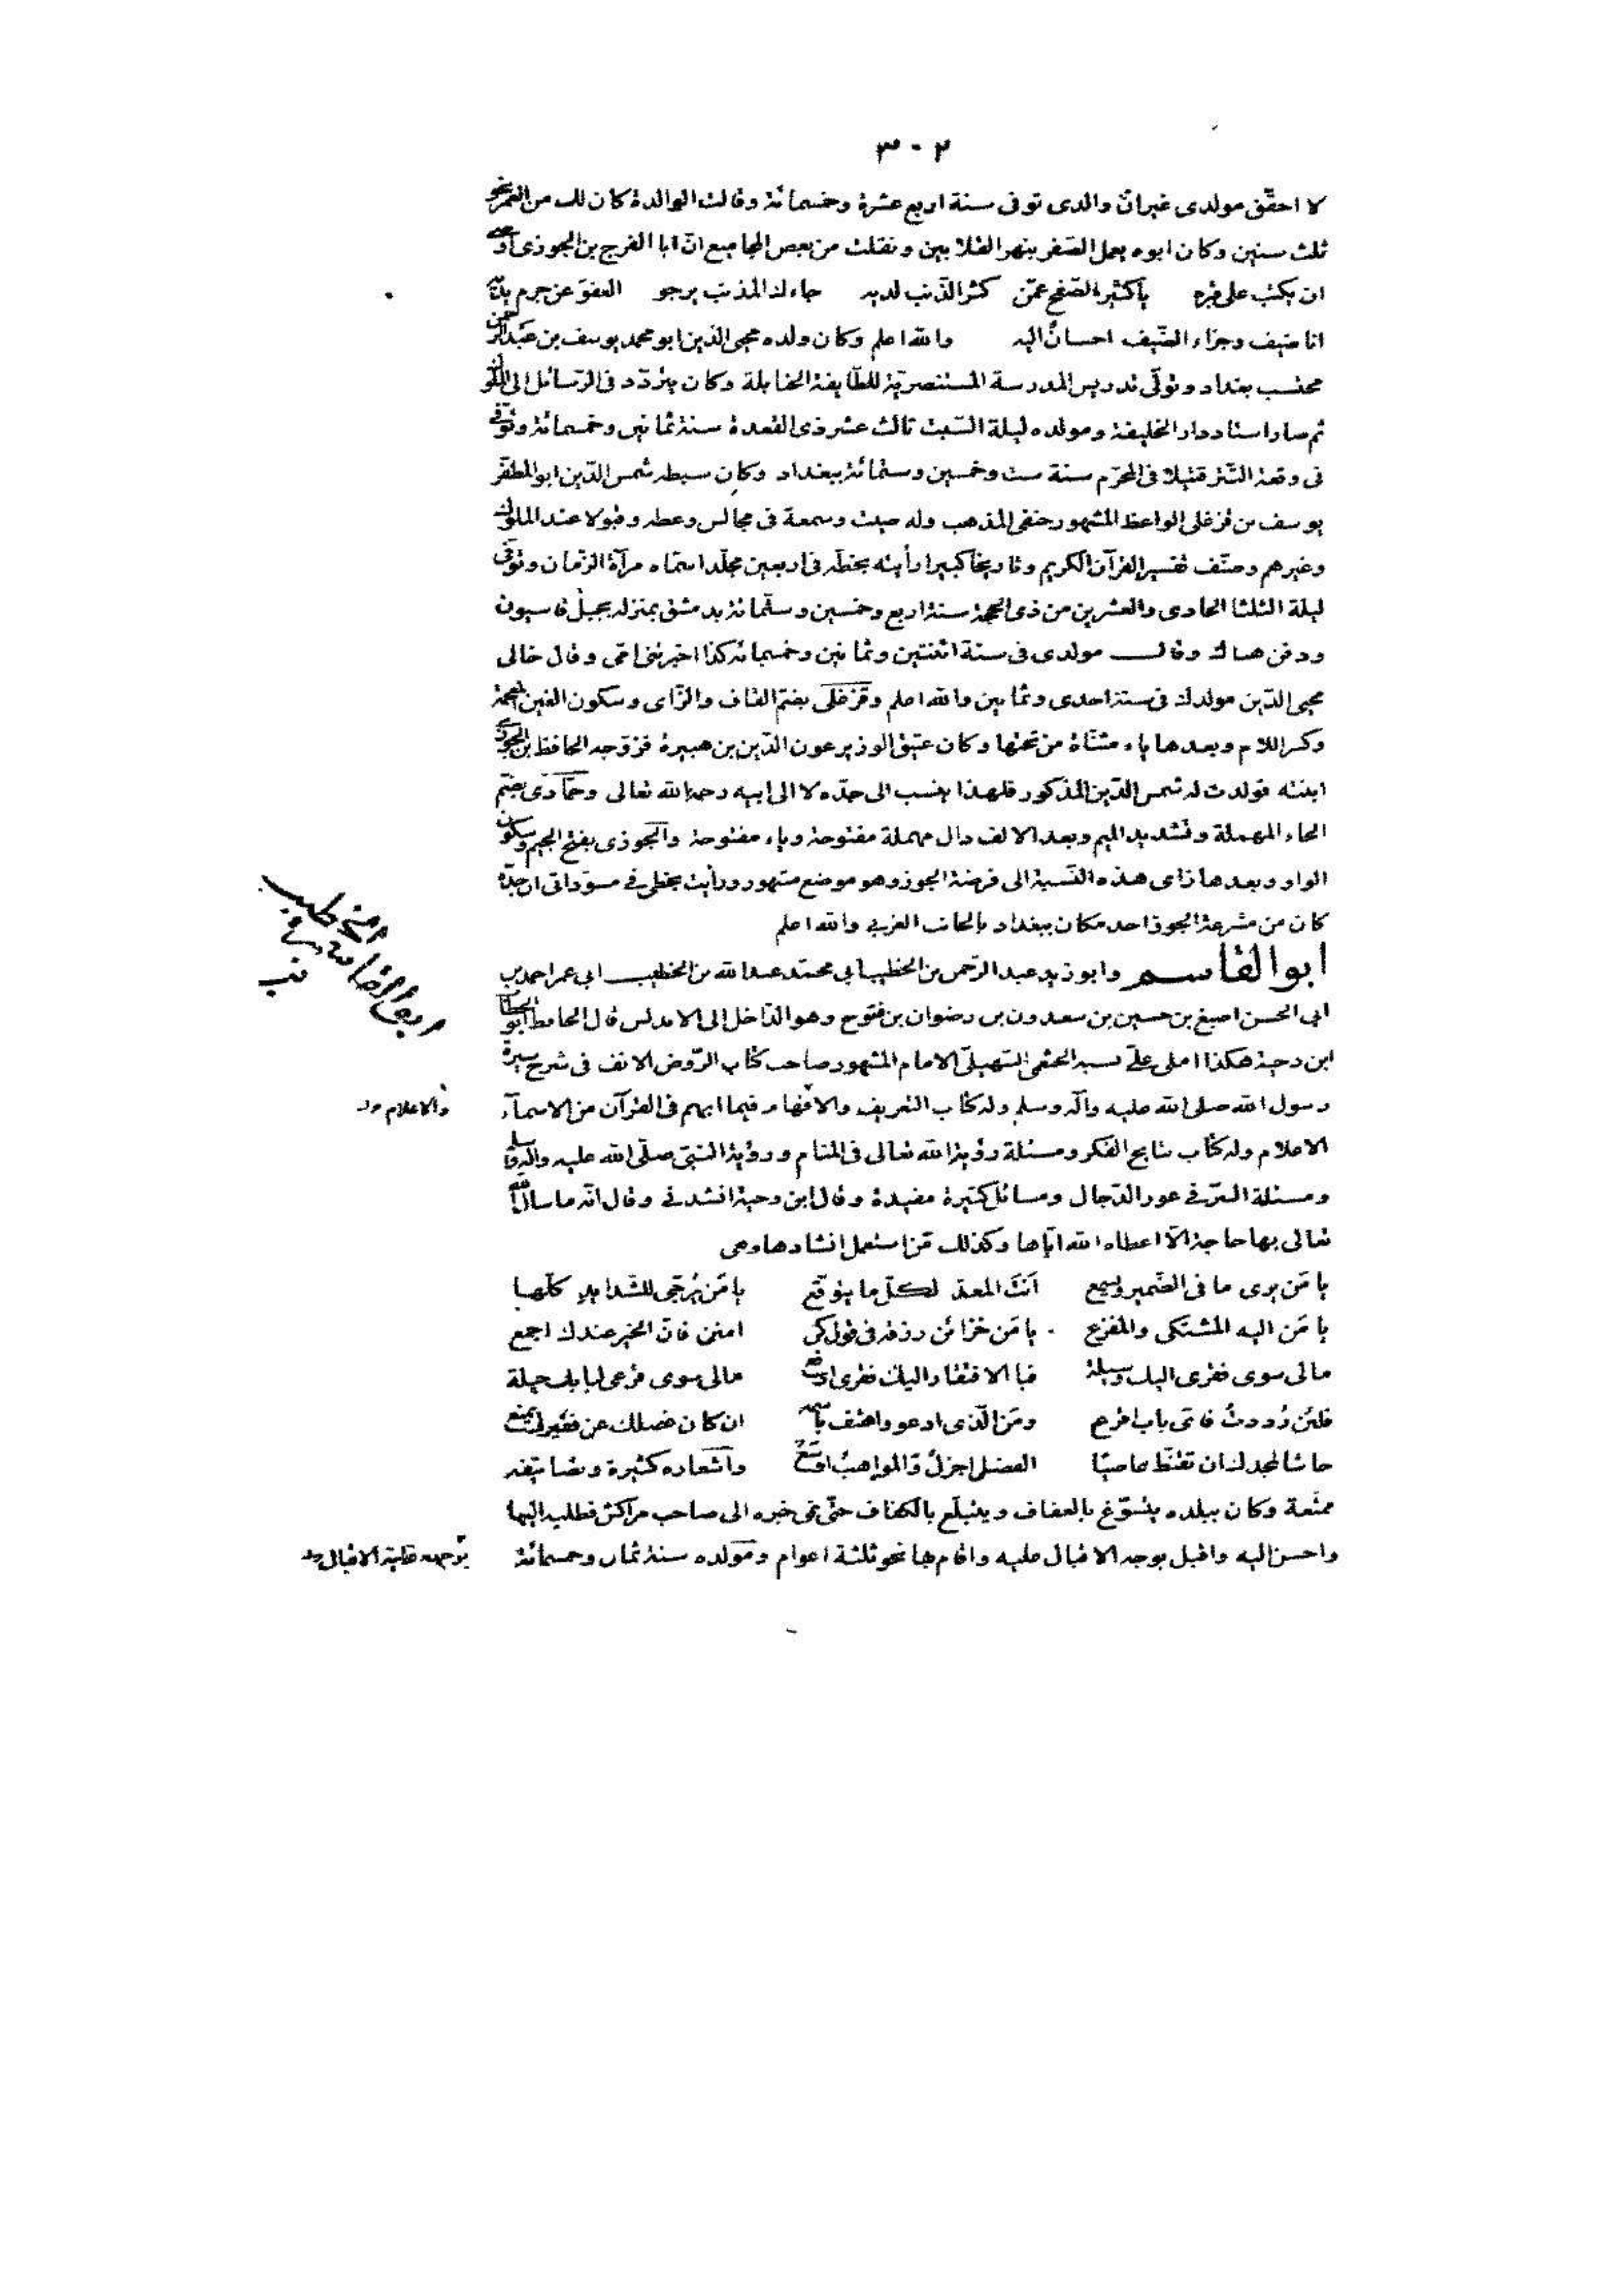 ٣٠٢
لا احقّق مولدى غير انّ والدى توفى سنة اربع عشرة وخمسمائة وقالت الوالدة كان لك من العمر نحو
ثلث سنين وكان ابوه يعمل الصّفر بنهر القلايين ونقلت من بعض المجاميع انّ ابا الفرج بن الجوزى اوصى
ان يكتب على قبره يا كثير الصّفح عمّن كثر الذّنب لديه جاءك المذنب يرجو العفو عن جرم يديه
انا ضيف وجزاء الضّيف احسان اليه والله اعلم وكان ولده محيى الدّين ابو محمد يوسف بن عبد الرحمن
محتسب بغداد وتولّى تدريس المدرسة المستنصريّة للطّايفة الحنابلة وكان يتردّد فى الرّسائل الى الملوك
ثم صار استاد دار الخليفة ومولده ليلة السّبت ثالث عشر ذى القعدة سنة ثمانين وخمسمائة وتوفّى
فى وقعة التّتر قتيلا فى المحرّم سنة ست وخمسين وستمائة ببغداد وكان سبطه شمس الدّين ابو المظفّر
يوسف بن قزغلى الواعظ المشهور حنفى المذهب وله صيت وسمعة فى مجالس وعظه وقبولا عند الملوك
وغيرهم وصنّف تفسير القرآن الكريم وتاريخا كبيرا رأيته بخطّه فى اربعين مجلّدا سمّاه مرآة الزّمان وتوفّى
ليلة الثلثا الحادى والعشرين من ذى الحجة سنة اربع وخمسين وستّمائة بدمشق بمنزله بجبل قاسيون
ودفن هناك وقال مولدى فى سنة اثنتين وثمانين وخمسمائة كذا اخبرتنى امّى وقال خالى
محيى الدّين مولدك فى سنة احدى وثمانين والله اعلم وقزغلى بضمّ القاف والزّاى وسكون الغين المعجمة
وكسر اللام وبعدها ياء مثنّاة من تحتها وكان عتيق الوزير عون الدّين بن هبيرة فزوّجه الحافظ بن الجوزى
ابنته فولدت له شمس الدّين المذكور فلهذا ينسب الى جدّه لا الى ابيه رحمه الله تعالى وحمّادى بضمّ
الحاء المهملة وتشديد الميم وبعد الالف دال مهملة مفتوحة وياء مفتوحة والجوزى بفتح الجيم وسكون
الواو وبعدها زاى هذه النّسبة الى فرضة الجوز وهو موضع مشهور ورأيت بخطّى فى مسوّداتى ان جدّه
كان من مشرعة الجوز احد مكان ببغداد بالجانب الغربى والله اعلم
ابو القاسم وابو زيد عبد الرّحمن بن الخطيب ابى محمّد عبد الله بن الخطيب ابى عمر احمد بن
ابى الحسن اصبغ بن حسين بن سعدون بن رضوان بن فتوح وهو الدّاخل الى الاندلس قال الحافظ ابو الخطاب
ابن دحية هكذا املى علىّ نسبه الخثعمى السّهيلىّ الامام المشهور صاحب كتاب الرّوض الانف فى شرح سيرة
رسول الله صلى الله عليه وآله وسلم وله كتاب التعريف والافهام فيما ابهم فى القرآن من الاسمآء
والاعلام
الاعلام وله كتاب نتايج الفكر ومسئلة رؤية الله تعالى فى المنام ورؤية النّبىّ صلّى الله عليه وآله وسلم
ومسئلة السّرّ فى عور الدّجال ومسائل كثيرة مفيدة وقال ابن دحية انشدنى وقال انّه ما سأل الله
تعالى بها حاجة الّا اعطاه الله ايّاها وكذلك من استعمل انشادها وهى
يا مَن يرى ما فى الضّمير ويسمع انتَ المعدّ لكلّ ما يتوقّع يا مَن يُرجّى للشّدايد كلّها
يا مَن اليه المشتكى والمفزع يا مَن خزائن رزقه فى قول كن امنن فانّ الخير عندك اجمع
مالى سوى فقرى اليك وسيلة فبالافتقار اليك فقرى ادفع مالى سوى قرعى لبابك حيلة
فلئن رُددتُ فاىّ باب اقرع ومَن الّذى ادعو واهتف باسمه ان كان فضلك عن فقيرك يمنع
حاشا لمجدك ان تقنّط عاصيًا الفضل اجزلُ والمواهبُ اوسعُ واشعاره كثيرة وتصانيفه
ممتعة وكان ببلده يتسوّغ بالعفاف ويتبلّغ بالكفاف حتّى نمى خبره الى صاحب مراكش فطلبه اليها
واحسن اليه واقبل بوجه الاقبال عليه واقام بها نحو ثلثة اعوام ومولده سنة ثمان وخمسمائة